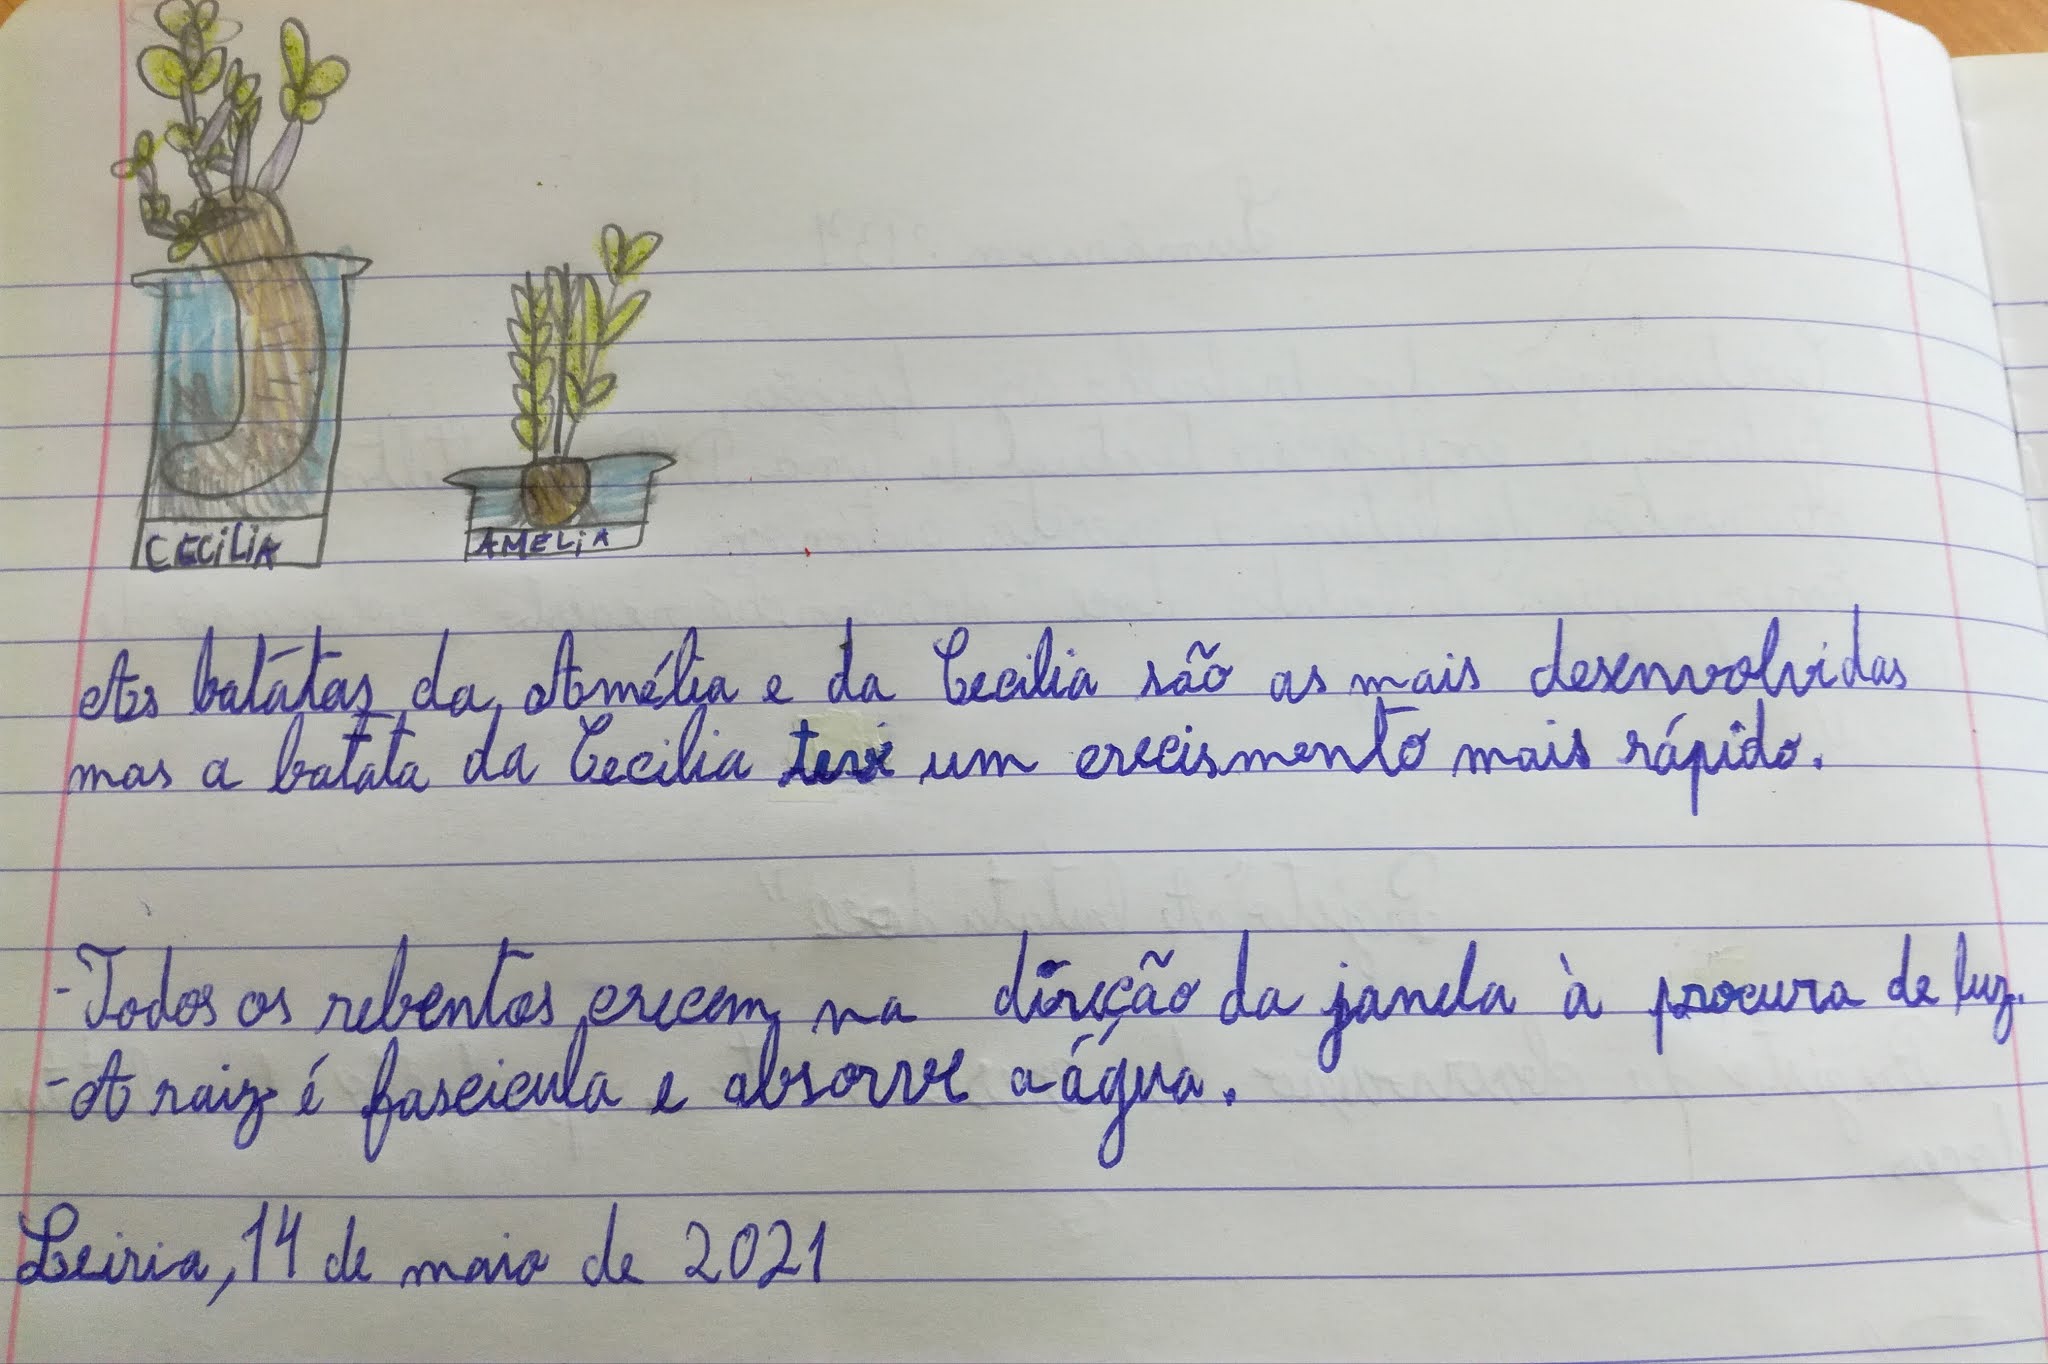 CECILIA
AMELIA
As batatas da Amélia e da Cecilia são as mais desenvolvidas
mas a batata da Cecilia teve um crecismento mais rápido.
-Todos os rebentos crecem na direção da janela à procura de luz.
-A raiz é fascicula e absorve a água.
Leiria, 14 de maio de 2021